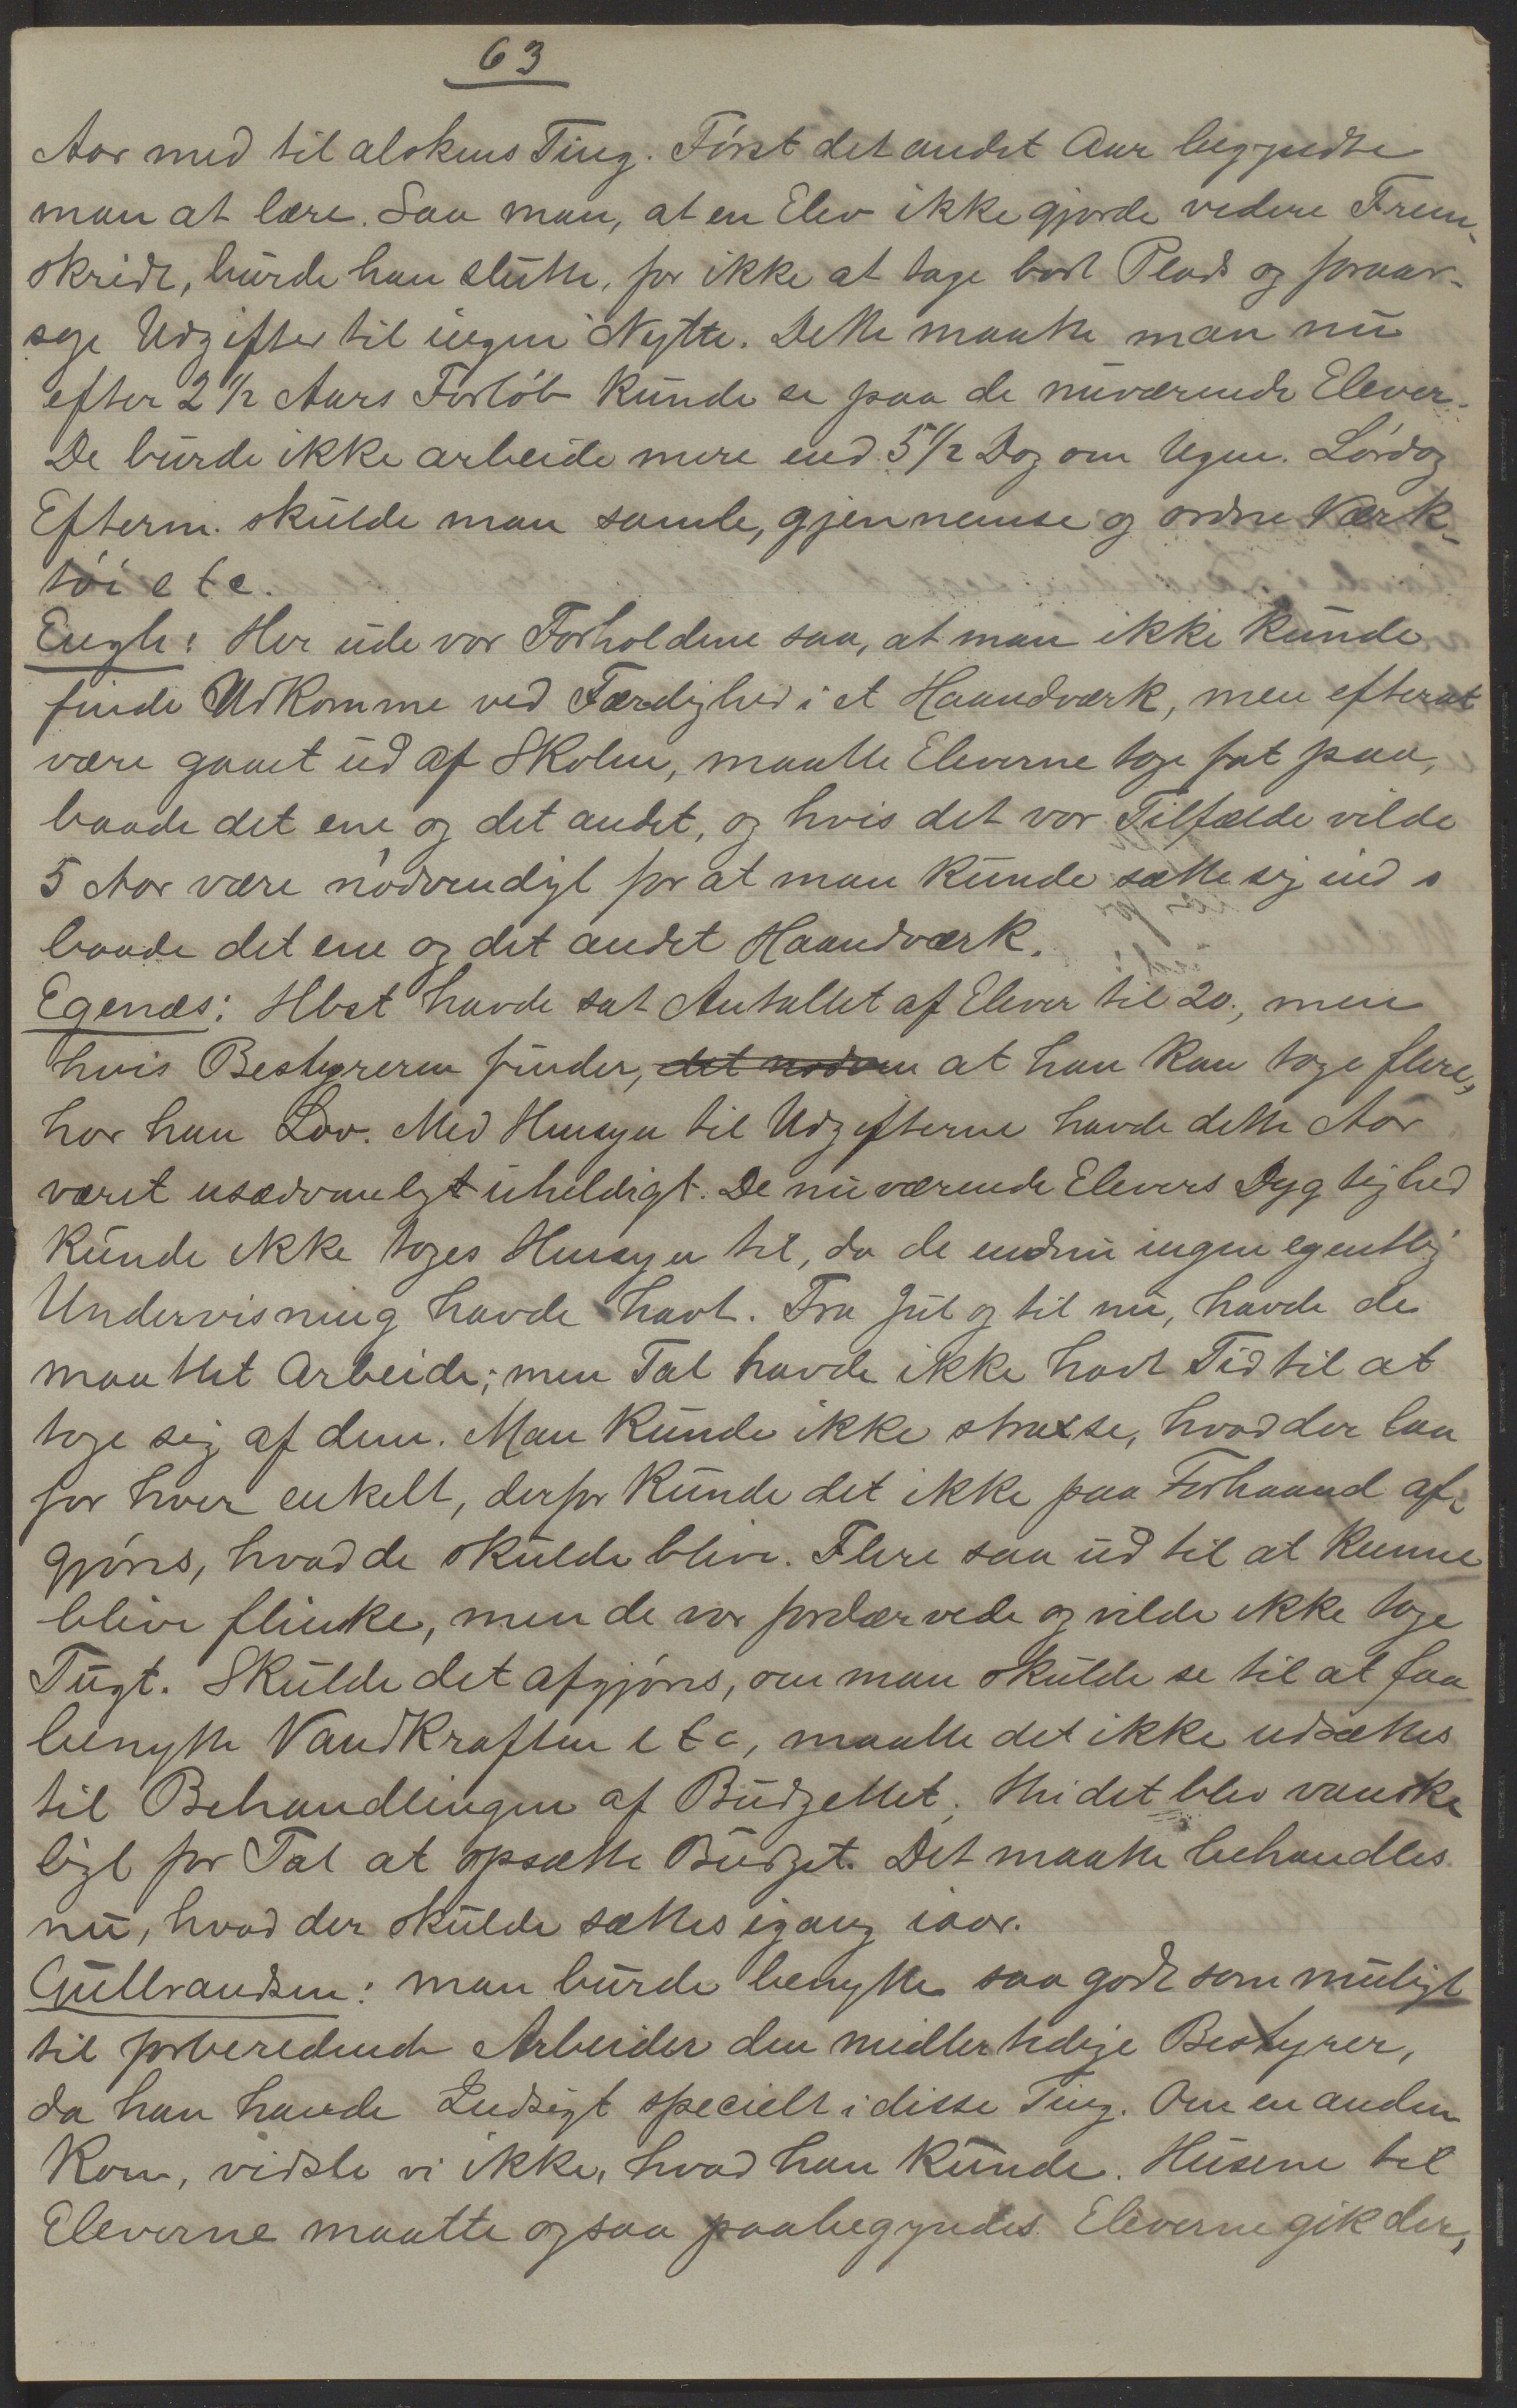 63
Aar med til alskens Ting. Först det andet Aar begyndte
man at lære. Saa man, at en Elev ikke gjorde videre Frem-
skridt, burde han slutte, for ikke at tage bort Plads og foraar-
sage Udgifter til ingen Nytte. Dette maatte man nu
efter 2 1/2 Aars Forløb kunde se paa de nuværende Elever.
De burde ikke arbeide mere end 5 1/2 Dag om Ugen. Lørdag
Efterm. skulde man samle, gjennemse og ordne Værk-
tøi etc.
Engh: Her ude var Forholdene saa, at man ikke kunde
finde Udkomme ved Færdighed i et Haandværk, men efterat
være gaaet ud af Skolen, maatte Eleverne tage fat paa,
baade det ene og det andet, og hvis det var Tilfælde vilde
5 Aar være nødvendigt for at man kunde sætte sig ind i
baade det ene og det andet Haandværk.
Egenæs: Hbst havde sat Antallet af Elever til 20., men
hvis Bestyreren finder, det nødven at han kan tage flere,
har han Lov. Med Hensyn til Udgifterne havde dette Aar
været usædvanligt uheldigt. De nuværende Elevers Dygtighed
kunde ikke tages Hensyn til, da de endnu ingen egentlig
Undervisning havde havt. Fra Jul og til nu, havde de
maattet arbeide; men Tal havde ikke havt Tid til at
tage sig af dem. Man kunde ikke strax se, hvad der laa
for hver enkelt, derfor kunde det ikke paa Forhaand af-
gjøres, hvad de skulde blive. Flere saa ud til at kunne
blive flinke, men de var fordærvede og vilde ikke tage
Tugt. Skulde det afgjøres, om man skulde se til at faa
benytte Vandkraften etc, maatte det ikke udsættes
til Behandlingen af Budgettet; thi det blev vanske
ligt for Tal at opsætte Budget. Det maatte behandles
nu, hvad der skulde sættes igang iaar.
Gulbrandsen: man burde benytte saa godt som muligt
til forberedende Arbeider den midlertidige Bestyrer,
da han havde Indsigt specielt i disse Ting. Om en anden
kom, vidste vi ikke, hvad han kunde. Husene til
Eleverne maatte ogsaa paabegyndes. Eleverne gik der,